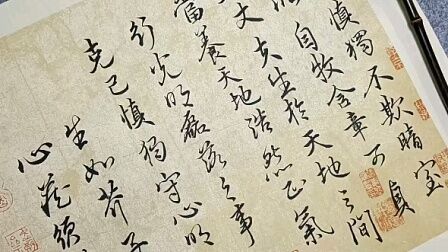 慎獨不欺暗室
自牧含章可貞
丈夫生於天地之間
當養天地浩然正氣
行光明磊落之事
克己慎獨守心明
生如芥子
心藏須